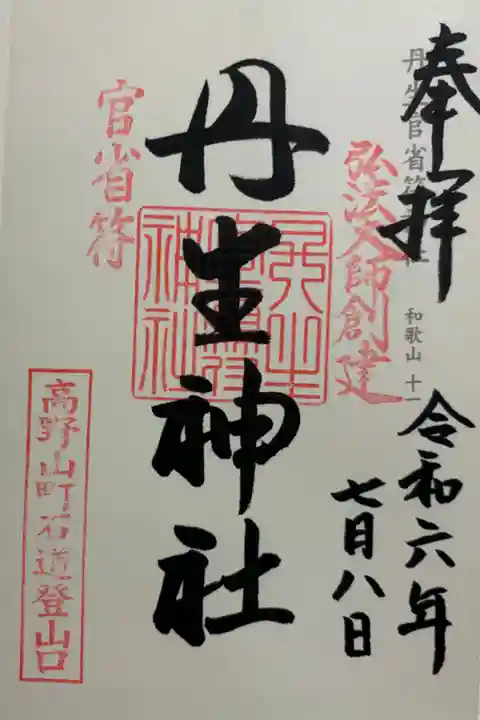 奉拝
丹生官省符神社
和歌山 十一
弘法大師創建
令和六年
七月八日
丹生神社
丹生官省符神社
官省符
高野山町石道登山口